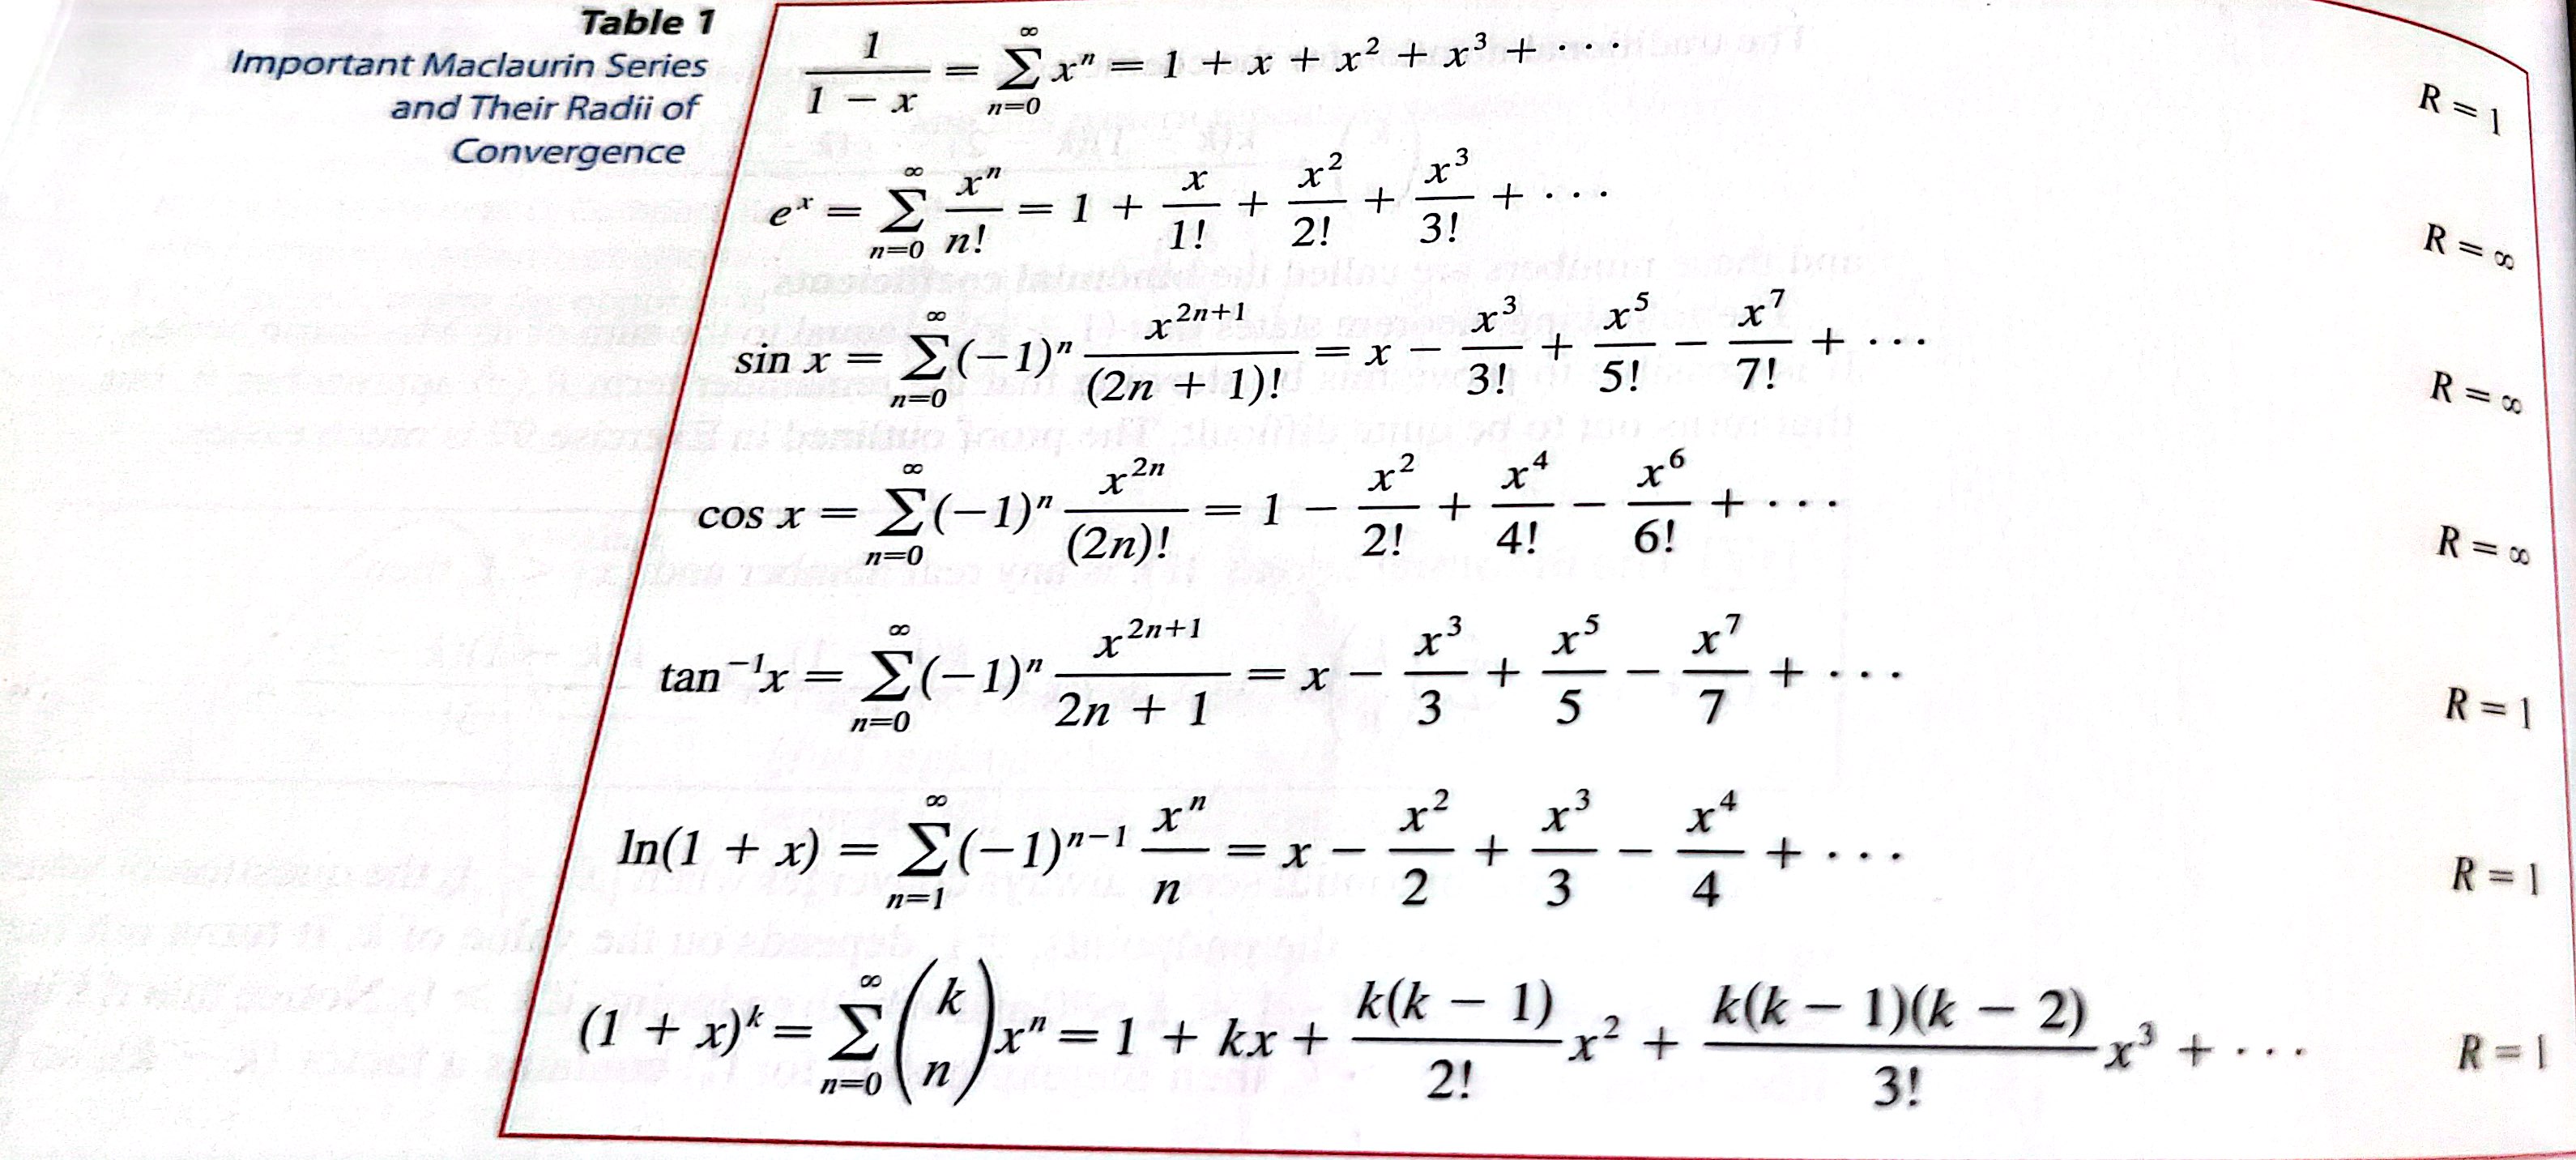 Table 1
Important Maclaurin Series
and Their Radii of
Convergence
1/(1 − x) = ∑_{n=0}^{∞} xⁿ = 1 + x + x² + x³ + · · · R = 1
eˣ = ∑_{n=0}^{∞} xⁿ/n! = 1 + x/1! + x²/2! + x³/3! + · · · R = ∞
sin x = ∑_{n=0}^{∞} (−1)ⁿ x^{2n+1}/(2n + 1)! = x − x³/3! + x⁵/5! − x⁷/7! + · · · R = ∞
cos x = ∑_{n=0}^{∞} (−1)ⁿ x^{2n}/(2n)! = 1 − x²/2! + x⁴/4! − x⁶/6! + · · · R = ∞
tan⁻¹x = ∑_{n=0}^{∞} (−1)ⁿ x^{2n+1}/(2n + 1) = x − x³/3 + x⁵/5 − x⁷/7 + · · · R = 1
ln(1 + x) = ∑_{n=1}^{∞} (−1)^{n−1} xⁿ/n = x − x²/2 + x³/3 − x⁴/4 + · · · R = 1
(1 + x)ᵏ = ∑_{n=0}^{∞} (k n) xⁿ = 1 + kx + k(k − 1)/2! x² + k(k − 1)(k − 2)/3! x³ + · · · R = 1